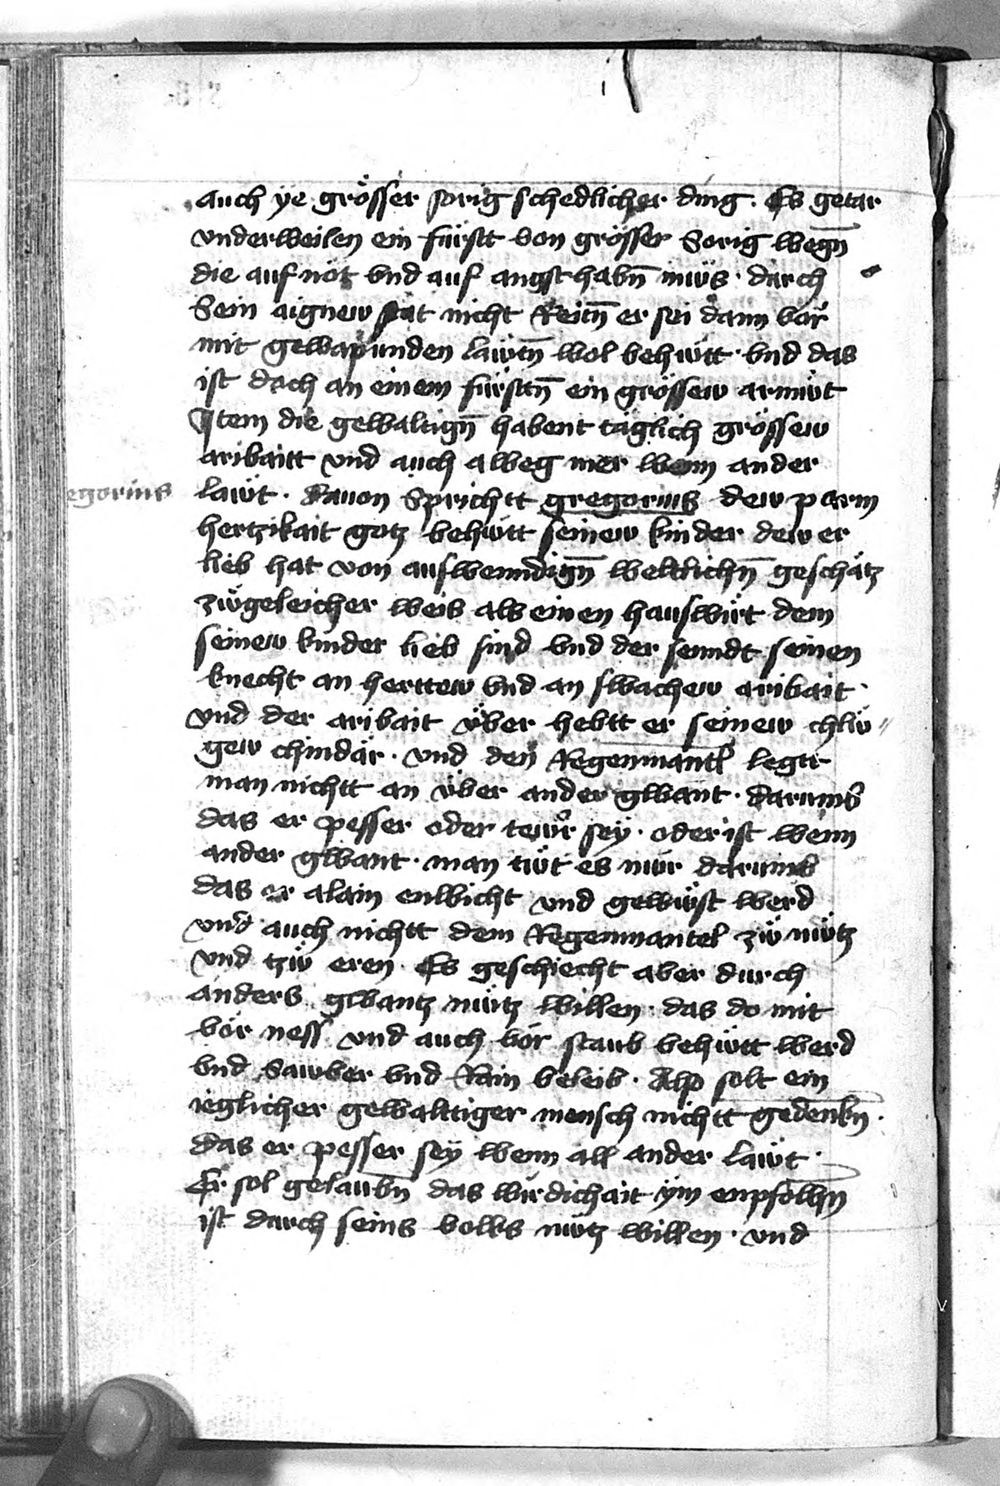 auch ye grösser sorig schedlicher ding. Es getar
vnderweilen ein fürstt von grösser Sorig wegn̄
die auf nöt vnd auf angst habn̄ müs. durch
Sein aignew stat nicht Reitn̄ er sei dann vor
mit gewapunden lawtn̄ wol behütt. vnd das
ist doch an einem fürsttn̄ ein grössew armüt
Item die gewaltign̄ habent täglich grössew
aribaitt vnd auch alweg mer wenn ander
egorius
lawt. dauon Sprichtt gregorius dew parm
hertzikait gotz behütt seinew kinder dew er
lieb hat von auswenndign̄ weltlichn̄ geschätz
zwgeleicher weis als einen hauswirt dem
seinew kinder lieb sind vnd der senndt seinen
knecht an herttew vnd an swachew aribait.
vnd der aribait über hebtt er seinew chlü//
gew chindär. vnd den Regenmantl legtt
man nichtt an über ander gwant. darumb
das er pesser oder tewr sey. oder ist wenn
ander gwant. man tüt es nür darumb
das er alain enwicht vnd gewüst werd
vnd auch nichtt dem Regenmantel zw nütz
vnd tzw eren. Es geschiecht aber durch
anders gwantz nütz willen. das do mit
vor ness vnd auch vor staub behütt werd
vnd Sawber vnd Rain beleib. Also solt ein
ieglicher gewalttiger mensch nichtt gedenkn̄.
das er pesser sey wenn all ander lawt.
Er sol gelaubn̄ das wirdichait ym enpfolhn̄
ist durch seins volks nütz willen. vnd